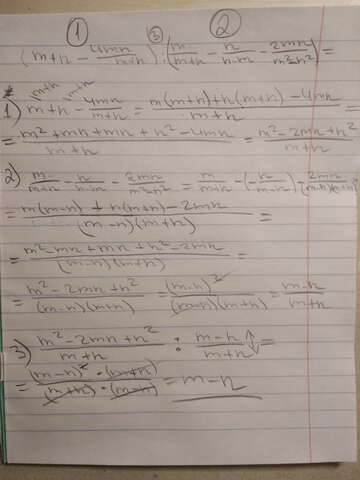 ① ③ ②
(m+n - 4mn/m+n) : (m/m+n - n/n-m - 2mn/m²-n²) =
* m+n m+n
1) m+n - 4mn/m+n = m(m+n)+n(m+n)-4mn/m+n =
= m²+mn+mn+n²-4mn/m+n = m²-2mn+n²/m+n
2) m/m+n - n/n-m - 2mn/m²-n² = m/m+n - (-n/m-n) - 2mn/(m-n)(m+n) =
= m(m-n)+n(m+n)-2mn/(m-n)(m+n) =
= m²-mn+mn+n²-2mn/(m-n)(m+n) =
= m²-2mn+n²/(m-n)(m+n) = (m-n)²/(m-n)(m+n) = m-n/m+n
3) m²-2mn+n²/m+n : m-n/m+n =
= (m-n)²·(m+n)/(m+n)·(m-n) = m-n